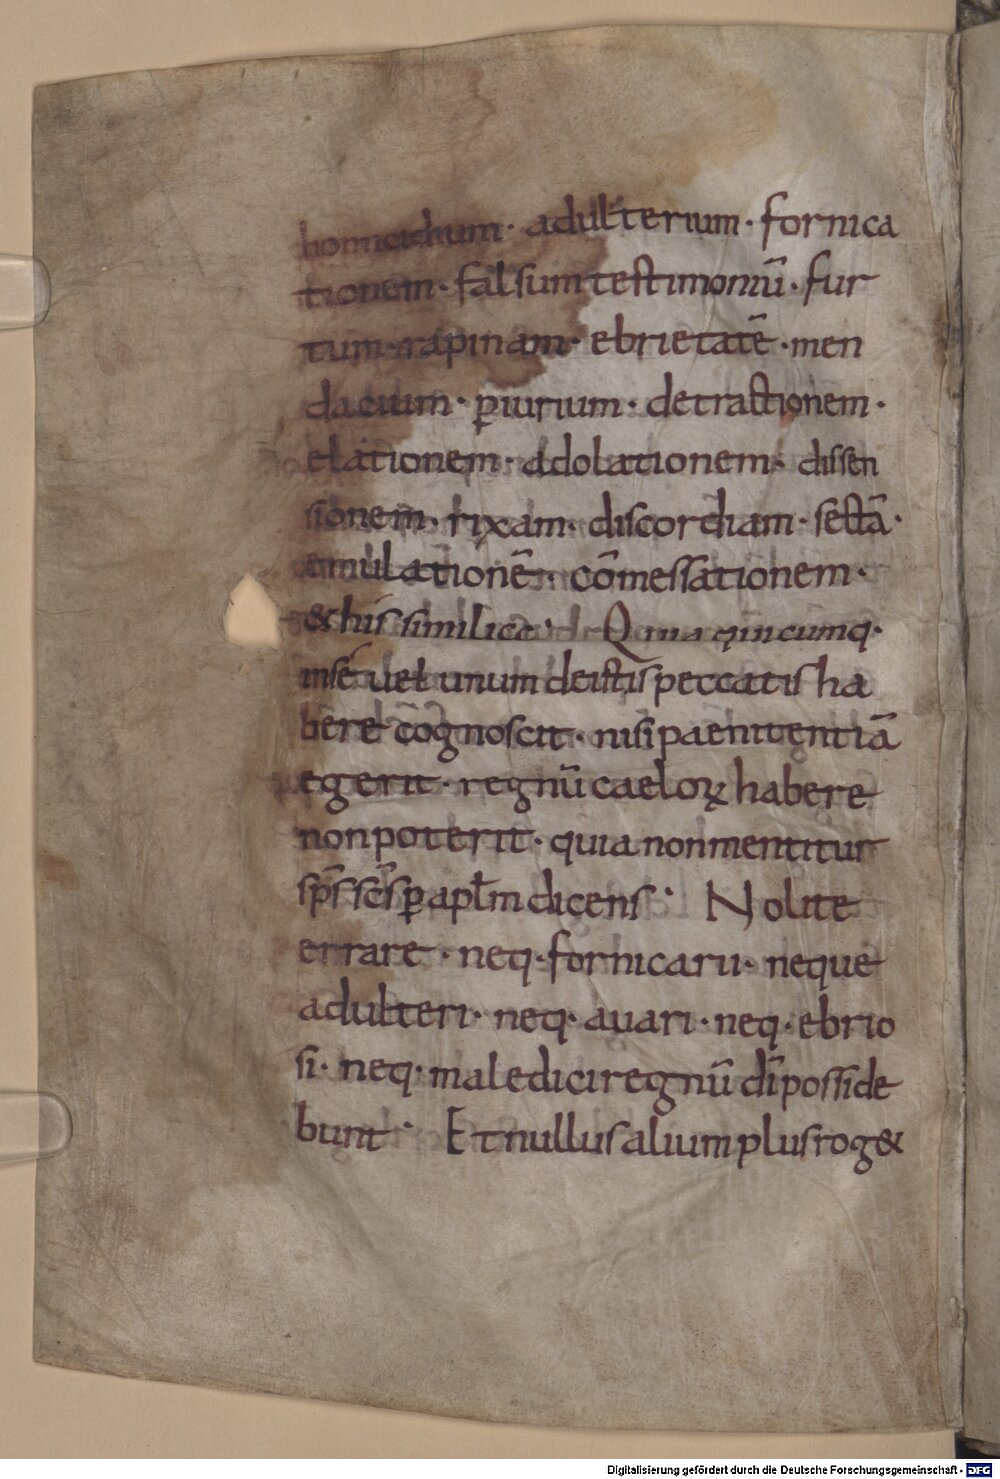 homicidium · adulterium · fornica
tionem · falsum testimoniū · fur
tum · rapinam · ebrietatē · men
dacium · ꝑiurium · detractionem ·
elationem · adolationem · dissen
sionem · rixam · discordiam · sectā ·
emulationē · cōmessationem ·
& his similia · Quia quicumq·
in se uel unum de istis peccatis ha
bere cognoscit · nisi paenitentiā
egerit · regnū caeloꝝ habere
non poterit · quia non mentitur
sp̄s sc̄s ꝑ apl̄m dicens · Nolite
errare · neq· fornicarii · neque
adulteri · neq· auari · neq· ebrio
si · neq· maledici regnū dī posside
bunt · Et nullus alium plus rog&
Digitalisierung gefördert durch die Deutsche Forschungsgemeinschaft - DFG